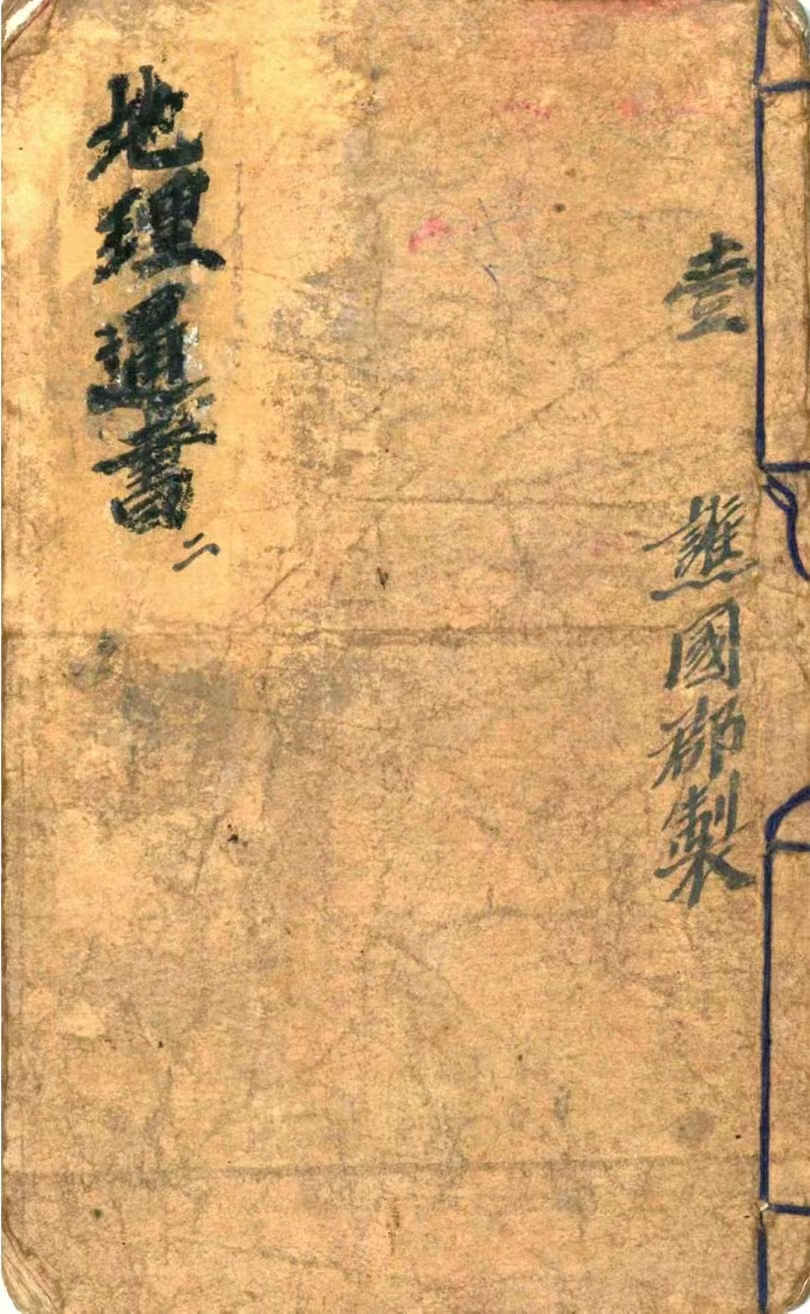 壹
譙國郡製
地理通書二